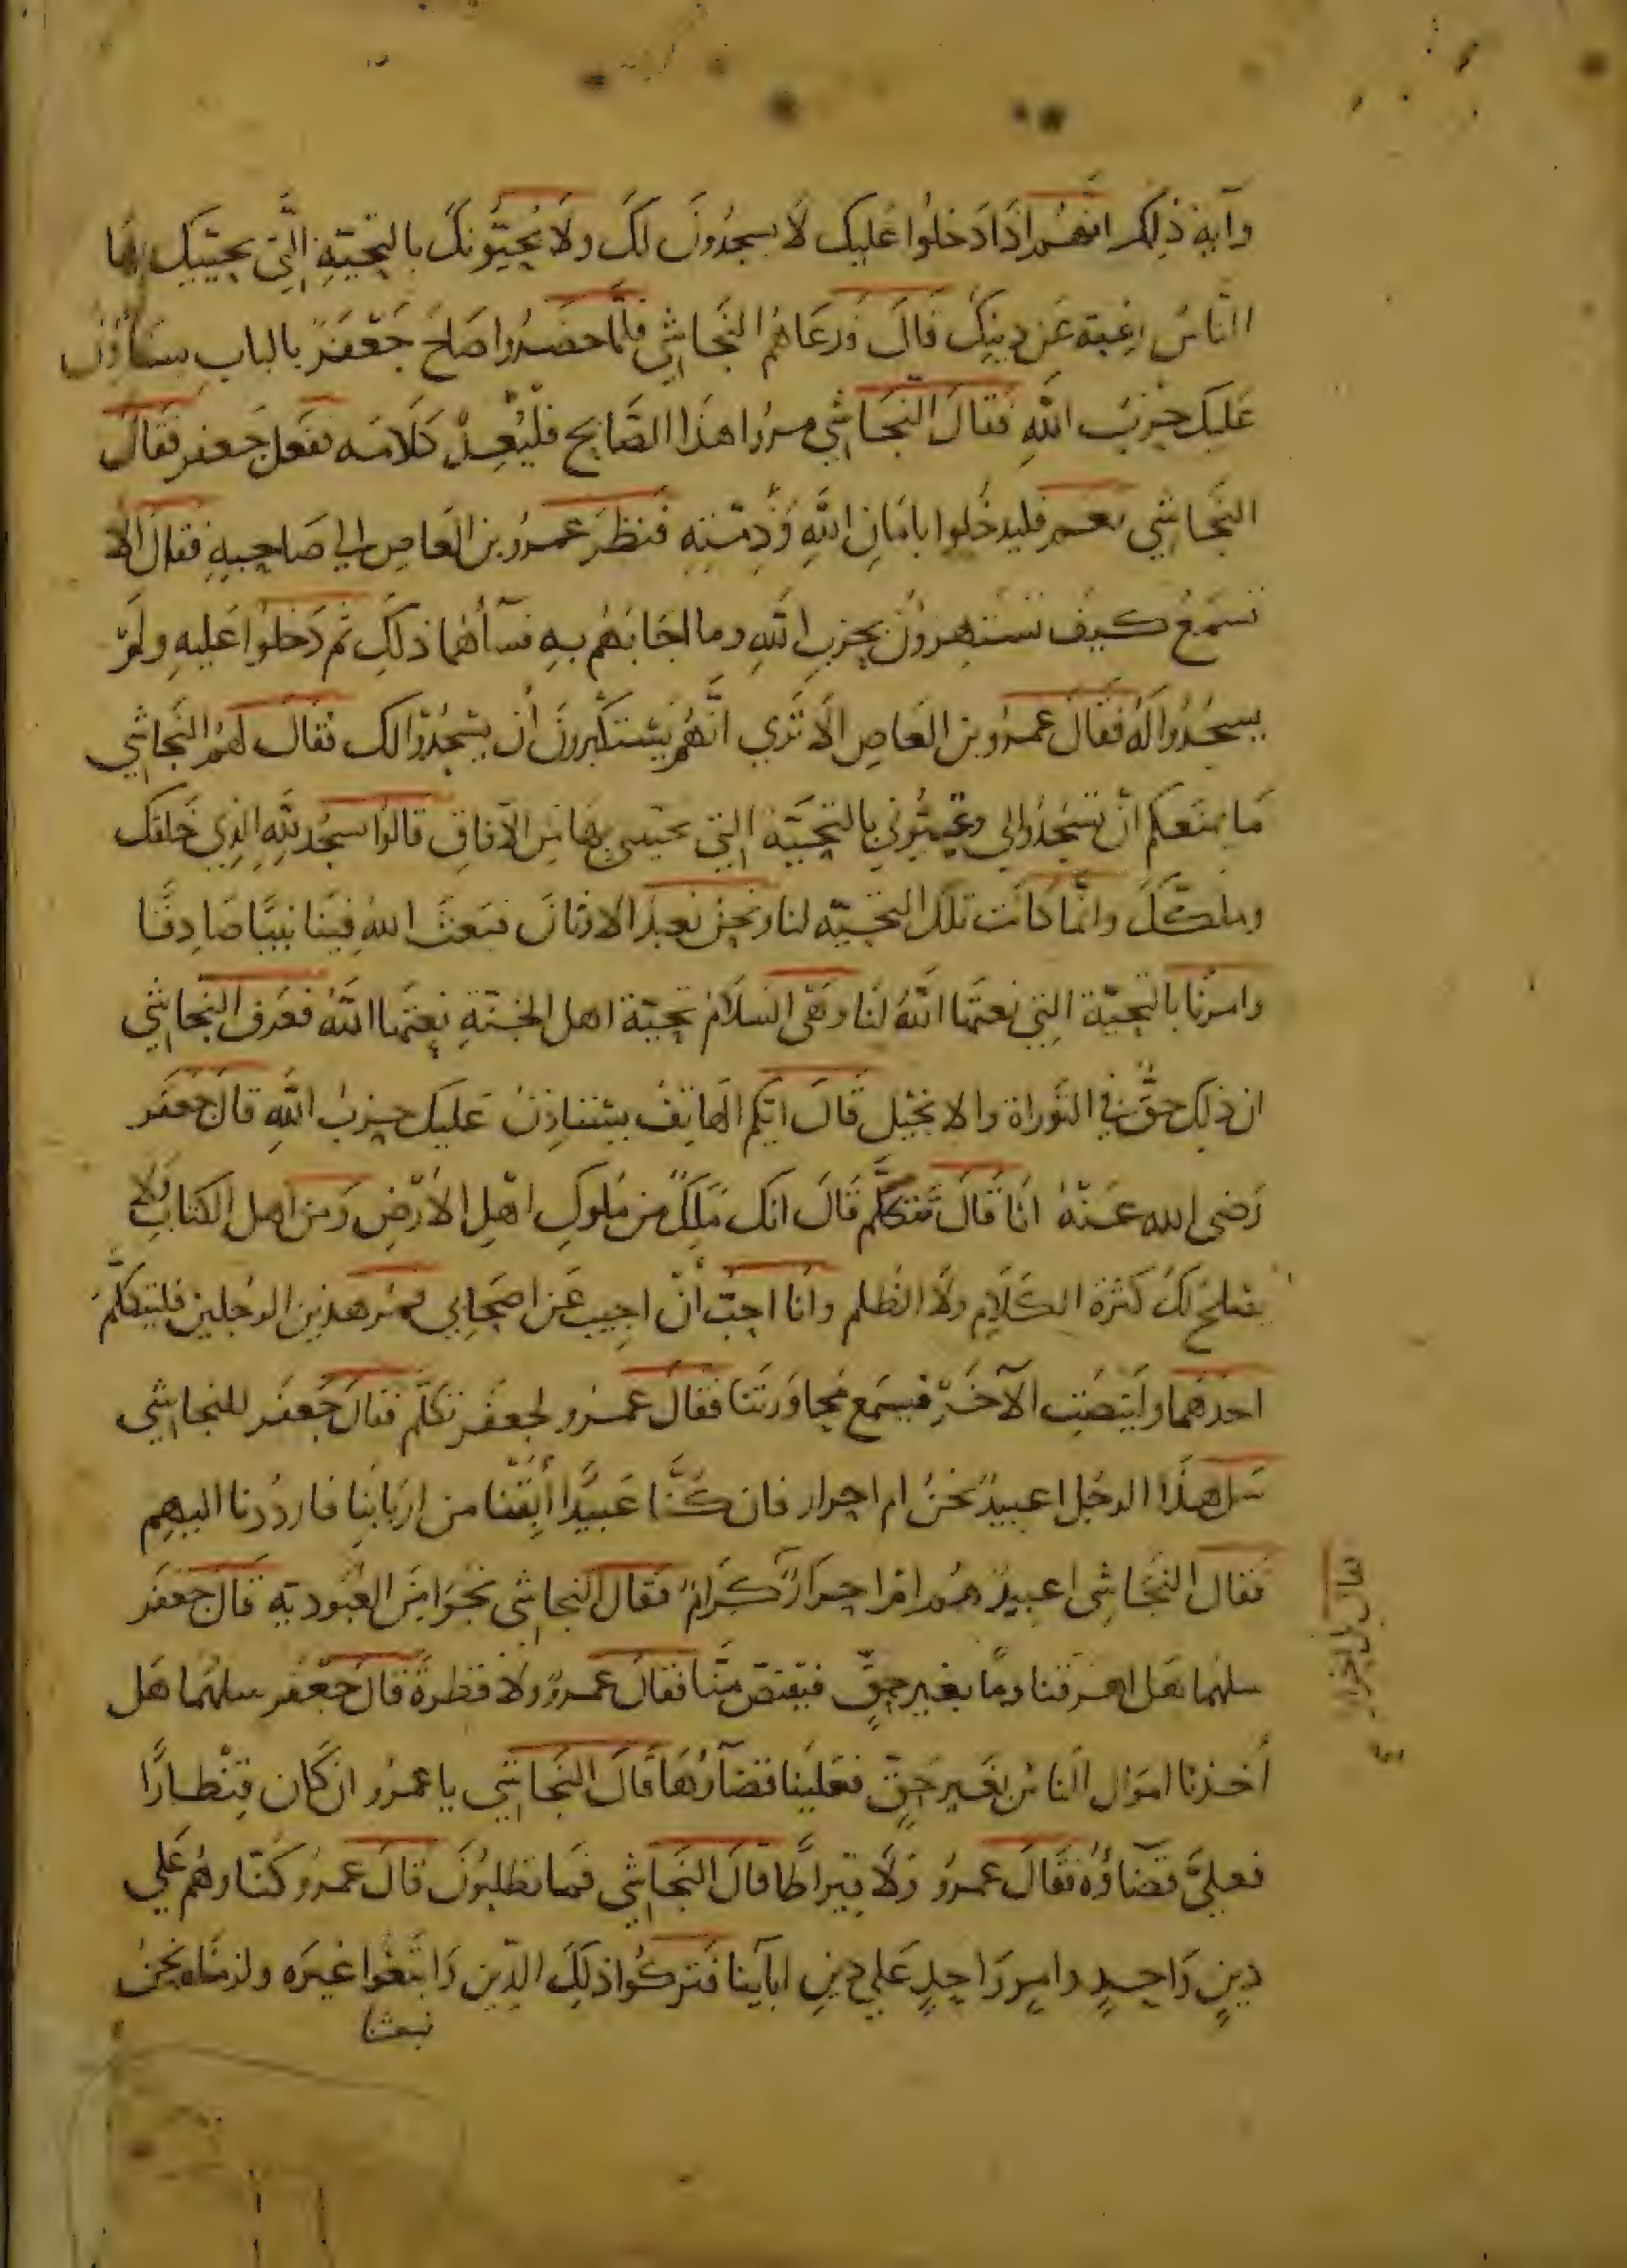 وآية ذلك انهم اذا دخلوا عليك لا يسجدون لك ولا يحيّونك بالتحيّة التي يحييك بها
الناس رغبة عن دينك قال فدعاهم النجاشي فلمّا حضروا صاح جعفر بالباب يستأذن
عليك حزب الله فقال النجاشي مروا هذا الصايح فليعد كلامه ففعل جعفر فقال
النجاشي نعم فليدخلوا بامان الله وذمّته فنظر عمرو بن العاص الي صاحبه فقال الا
تسمع كيف تستهزون بحزب الله وما اجابهم به فسآهما ذلك ثم دخلوا عليه ولم
يسجدوا له فقال عمرو بن العاص الا تري انّهم يستكبرون أن يسجدوا لك فقال لهم النجاشي
ما يمنعكم ان تسجدوا لي وتحيّوني بالتحيّة التي يحييني بها من الآفاق قالوا نسجد لله الذي خلقك
وملّكك وانّما كانت تلك التحيّه لنا ونحن نعبد الاوثان فبعث الله فينا نبيّا صادقا
وامرنا بالتحيّة التي نعتها الله لنا وهي السلام تحيّة اهل الجنّة نعتها الله فعرف النجاشي
ان ذلك حقّ في التوراة والانجيل قال ايّكم الهاتف يستاذن عليك حزب الله قال جعفر
رضى الله عنه انا قال فتكلّم قال انك ملك من ملوك اهل الأرض ومن اهل الكتاب ولا
يصلح لك كثرة الكلام ولا الظلم وانا احبّ أن اجيب عن اصحابي فمر هذين الرجلين فليتكلّم
احدهما ولينصت الآخر فيسمع محاورتنا فقال عمرو لجعفر تكلّم فقال جعفر للنجاشي
سل هذا الرجل اعبيد نحن ام احرار فان كنّا عبيدًا أبقنا من اربابنا فارددنا اليهم
فقال النجاشى اعبيد هم ام احرار كرام فقال النجاشي نجوا من العبودية قال جعفر
سلهما هل اهرقنا دمًا بغير حقّ فيقتصّ منّا فقال عمرو ولا قطرة قال جعفر سلهما هل
أخذنا اموال الناس بغير حقّ فعلينا قضآؤها قال النجاشي يا عمرو ان كان قنطارًا
فعليّ قضآؤه فقال عمرو ولا قيراطا قال النجاشي فما تطلبون قال عمرو كنّا وهم علي
دين واحد وامر واحد علي دين ابآينا فتركوا ذلك الدّين واتبعوا غيره ولزمناه نحن
فبعثنا
فقال بل احرار